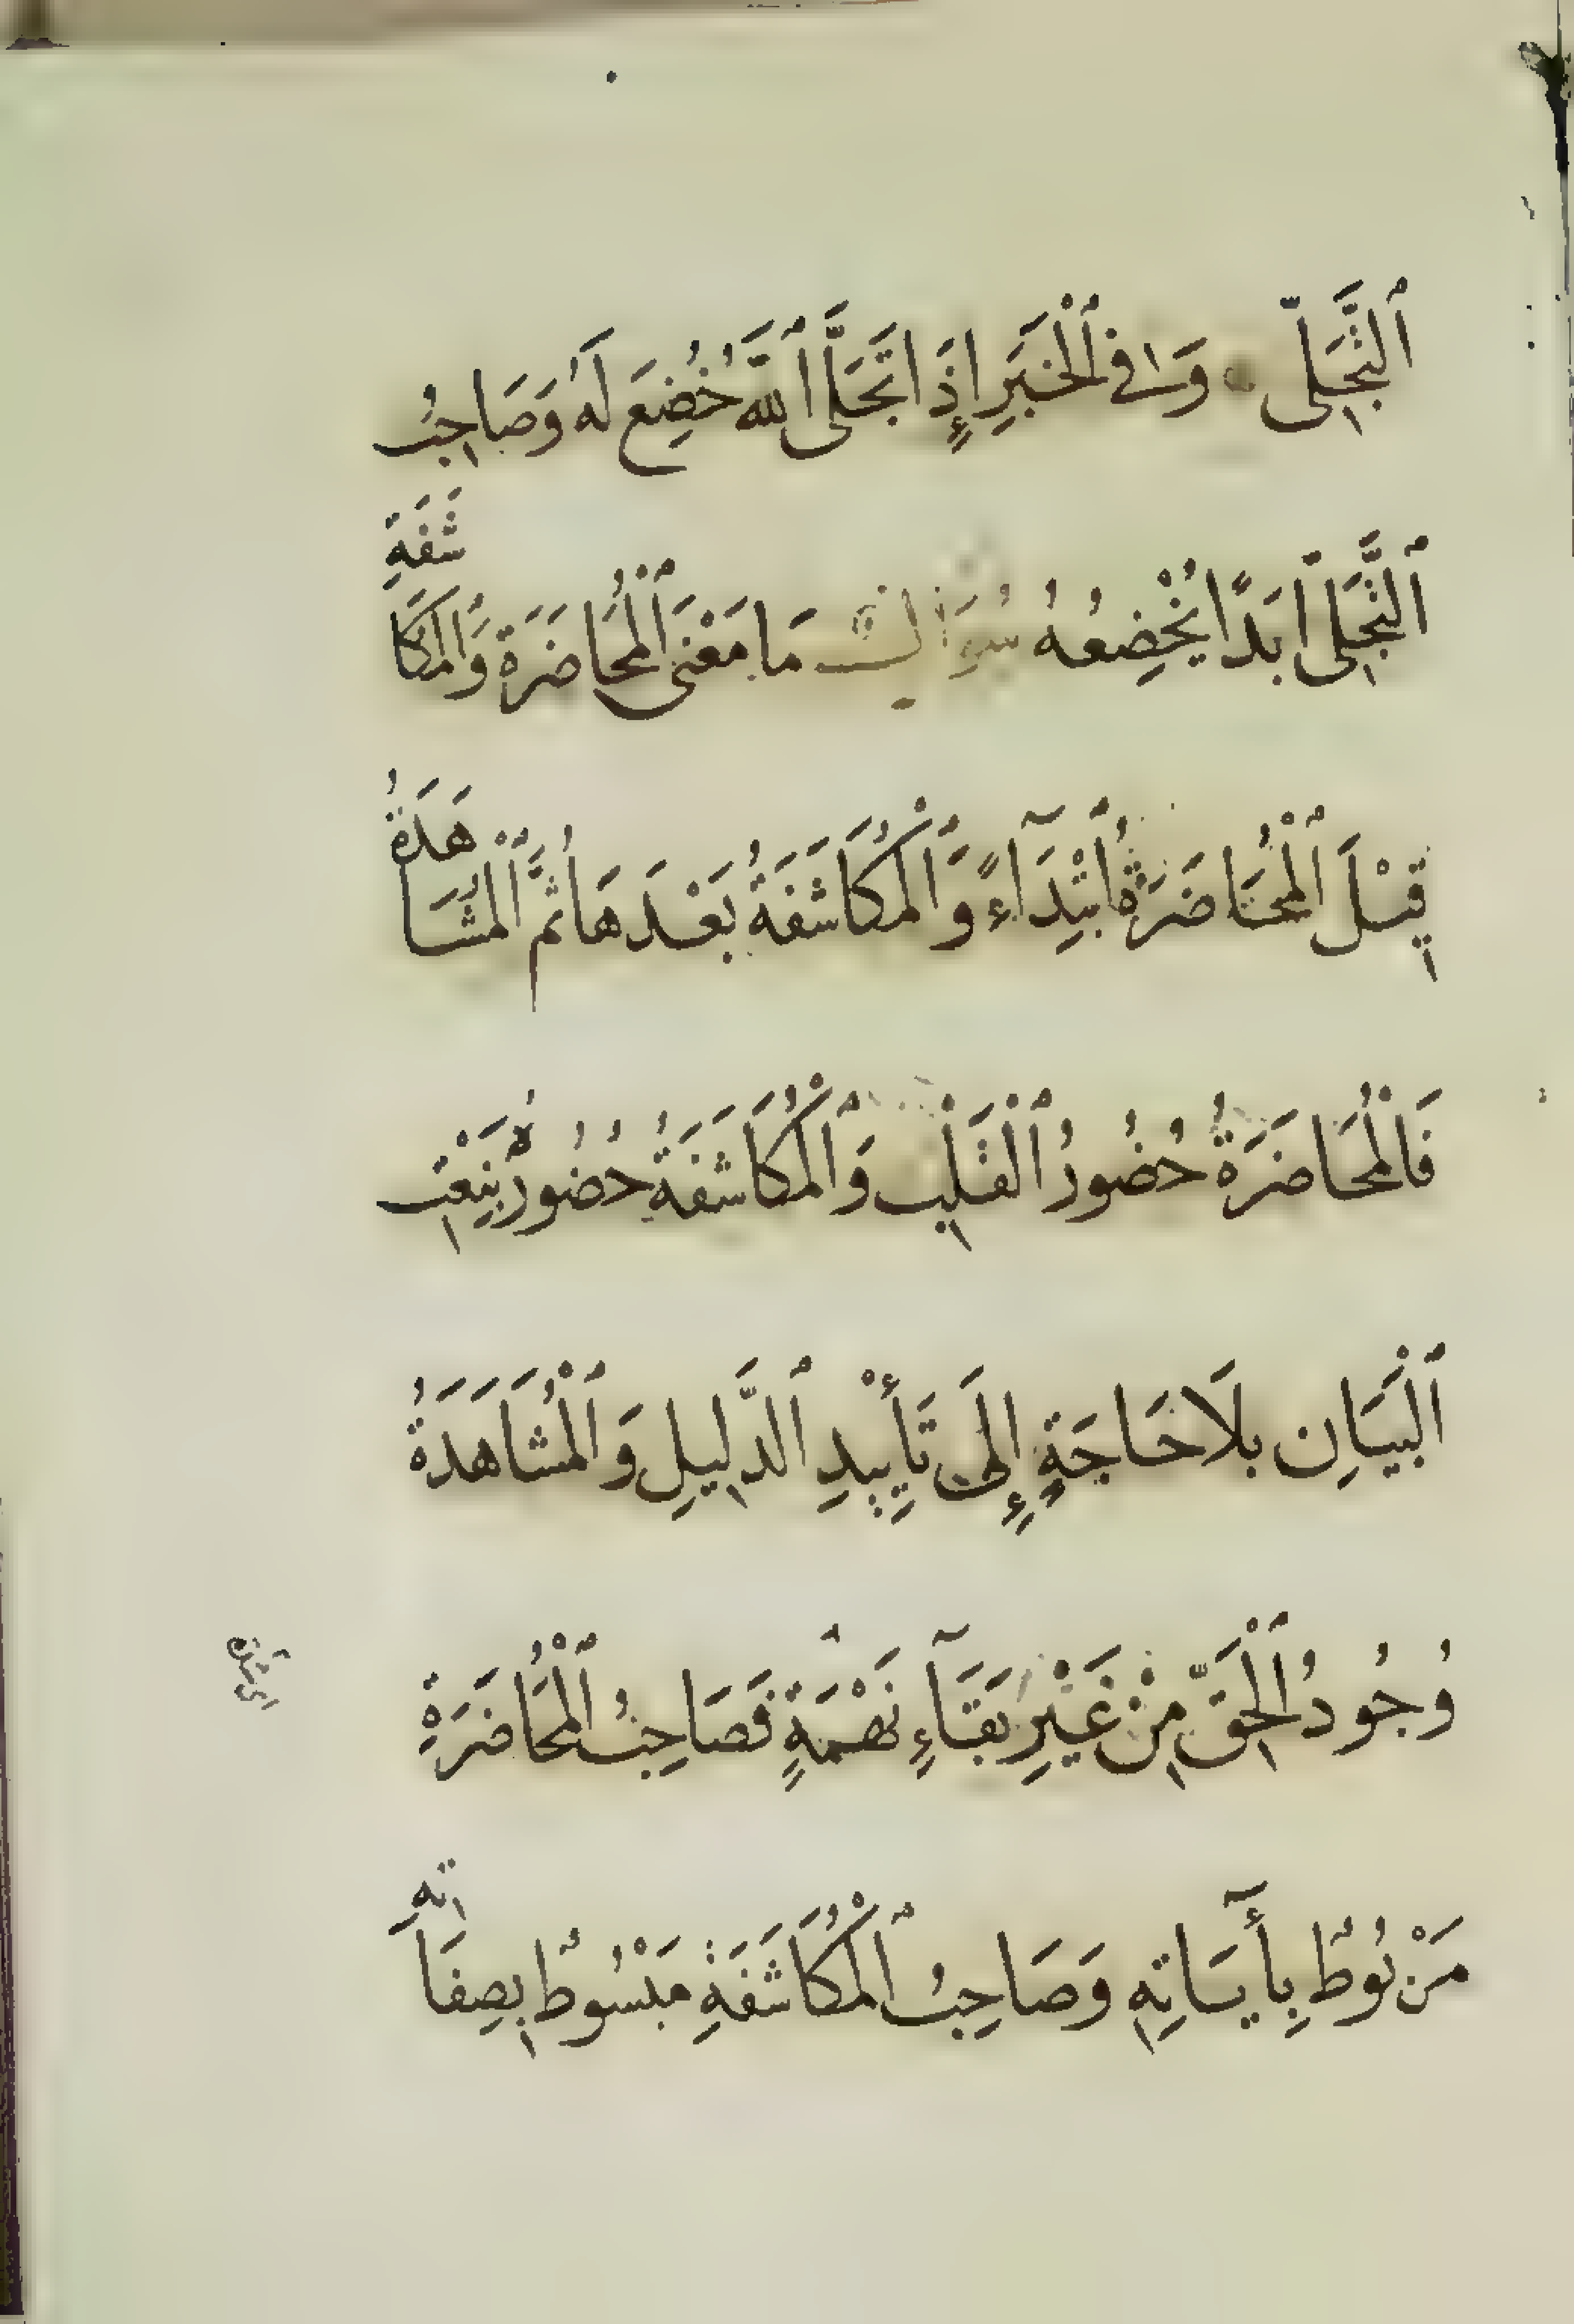 ٱلتَّجَلِّى وَفِى ٱلْخَبَرِ إِذَا تَجَلَّى ٱللَّهُ خُضِعَ لَهُ وَصَاحِبُ
ٱلتَّجَلِّى أَبَدًا يُخْضِعُهُ سُؤَالٌ مَا مَعْنَى ٱلْمُحَاضَرَةِ وَٱلْمُكَاشَفَةِ
قِيلَ ٱلْمُحَاضَرَةُ ٱبْتِدَآءً وَٱلْمُكَاشَفَةُ بَعْدَهَا ثُمَّ ٱلْمُشَاهَدَةُ
فَٱلْمُحَاضَرَةُ حُضُورُ ٱلْقَلْبِ وَٱلْمُكَاشَفَةُ حُضُورُهُ بِنَعْتِ
ٱلْبَيَانِ بِلَا حَاجَةٍ إِلَى تَأْيِيدِ ٱلدَّلِيلِ وَٱلْمُشَاهَدَةُ
وُجُودُ ٱلْحَقِّ مِنْ غَيْرِ بَقَآءِ تُهْمَةٍ فَصَاحِبُ ٱلْمُحَاضَرَةِ
مَرْبُوطٌ بِأَيَاتِهِ وَصَاحِبُ ٱلْمُكَاشَفَةِ مَبْسُوطٌ بِصِفَاتِهِ